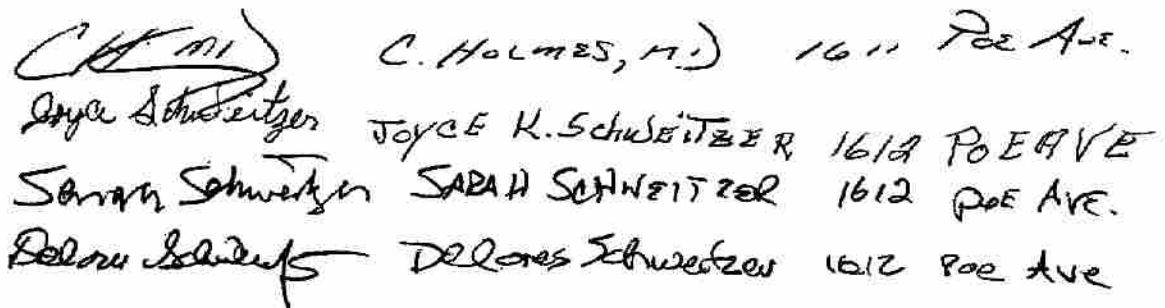 C. HOLMES, M.D 1611 POE AVE.
Joyce Schweitzer JOYCE K. SCHWEITZER 1612 POE AVE
Sarah Schweitzer SARAH SCHWEITZER 1612 POE AVE.
Delores Delores Schweitzer 1612 Poe Ave